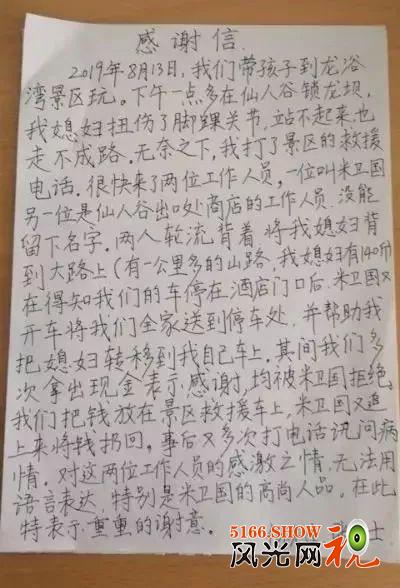 感谢信
2019年8月13日,我们带孩子到龙浴
湾景区玩。下午一点多在仙人谷锁龙坝,
我媳妇扭伤了脚踝关节,站不起来,也
走不成路。无奈之下,我打了景区的救援
电话。很快来了两位工作人员,一位叫米卫国
另一位是仙人谷出口处商店的工作人员,没能
留下名字。两人轮流背着将我媳妇背
到大路上(有一公里多的山路,我媳妇有140
在得知我们的车停在酒店门口后,米卫国又
开车将我们全家送到停车处,并帮助我
把媳妇转移到我自己车上。其间我们多
次拿出现金表示感谢,均被米卫国拒绝,
我们把钱放在景区救援车上,米卫国又追
上来将钱扔回。事后又多次打电话讯问病
情。对这两位工作人员的感激之情,无法用
语言表达,特别是米卫国的高尚人品。在此
特表示重重的谢意。
士
5166.SHOW
风光网视